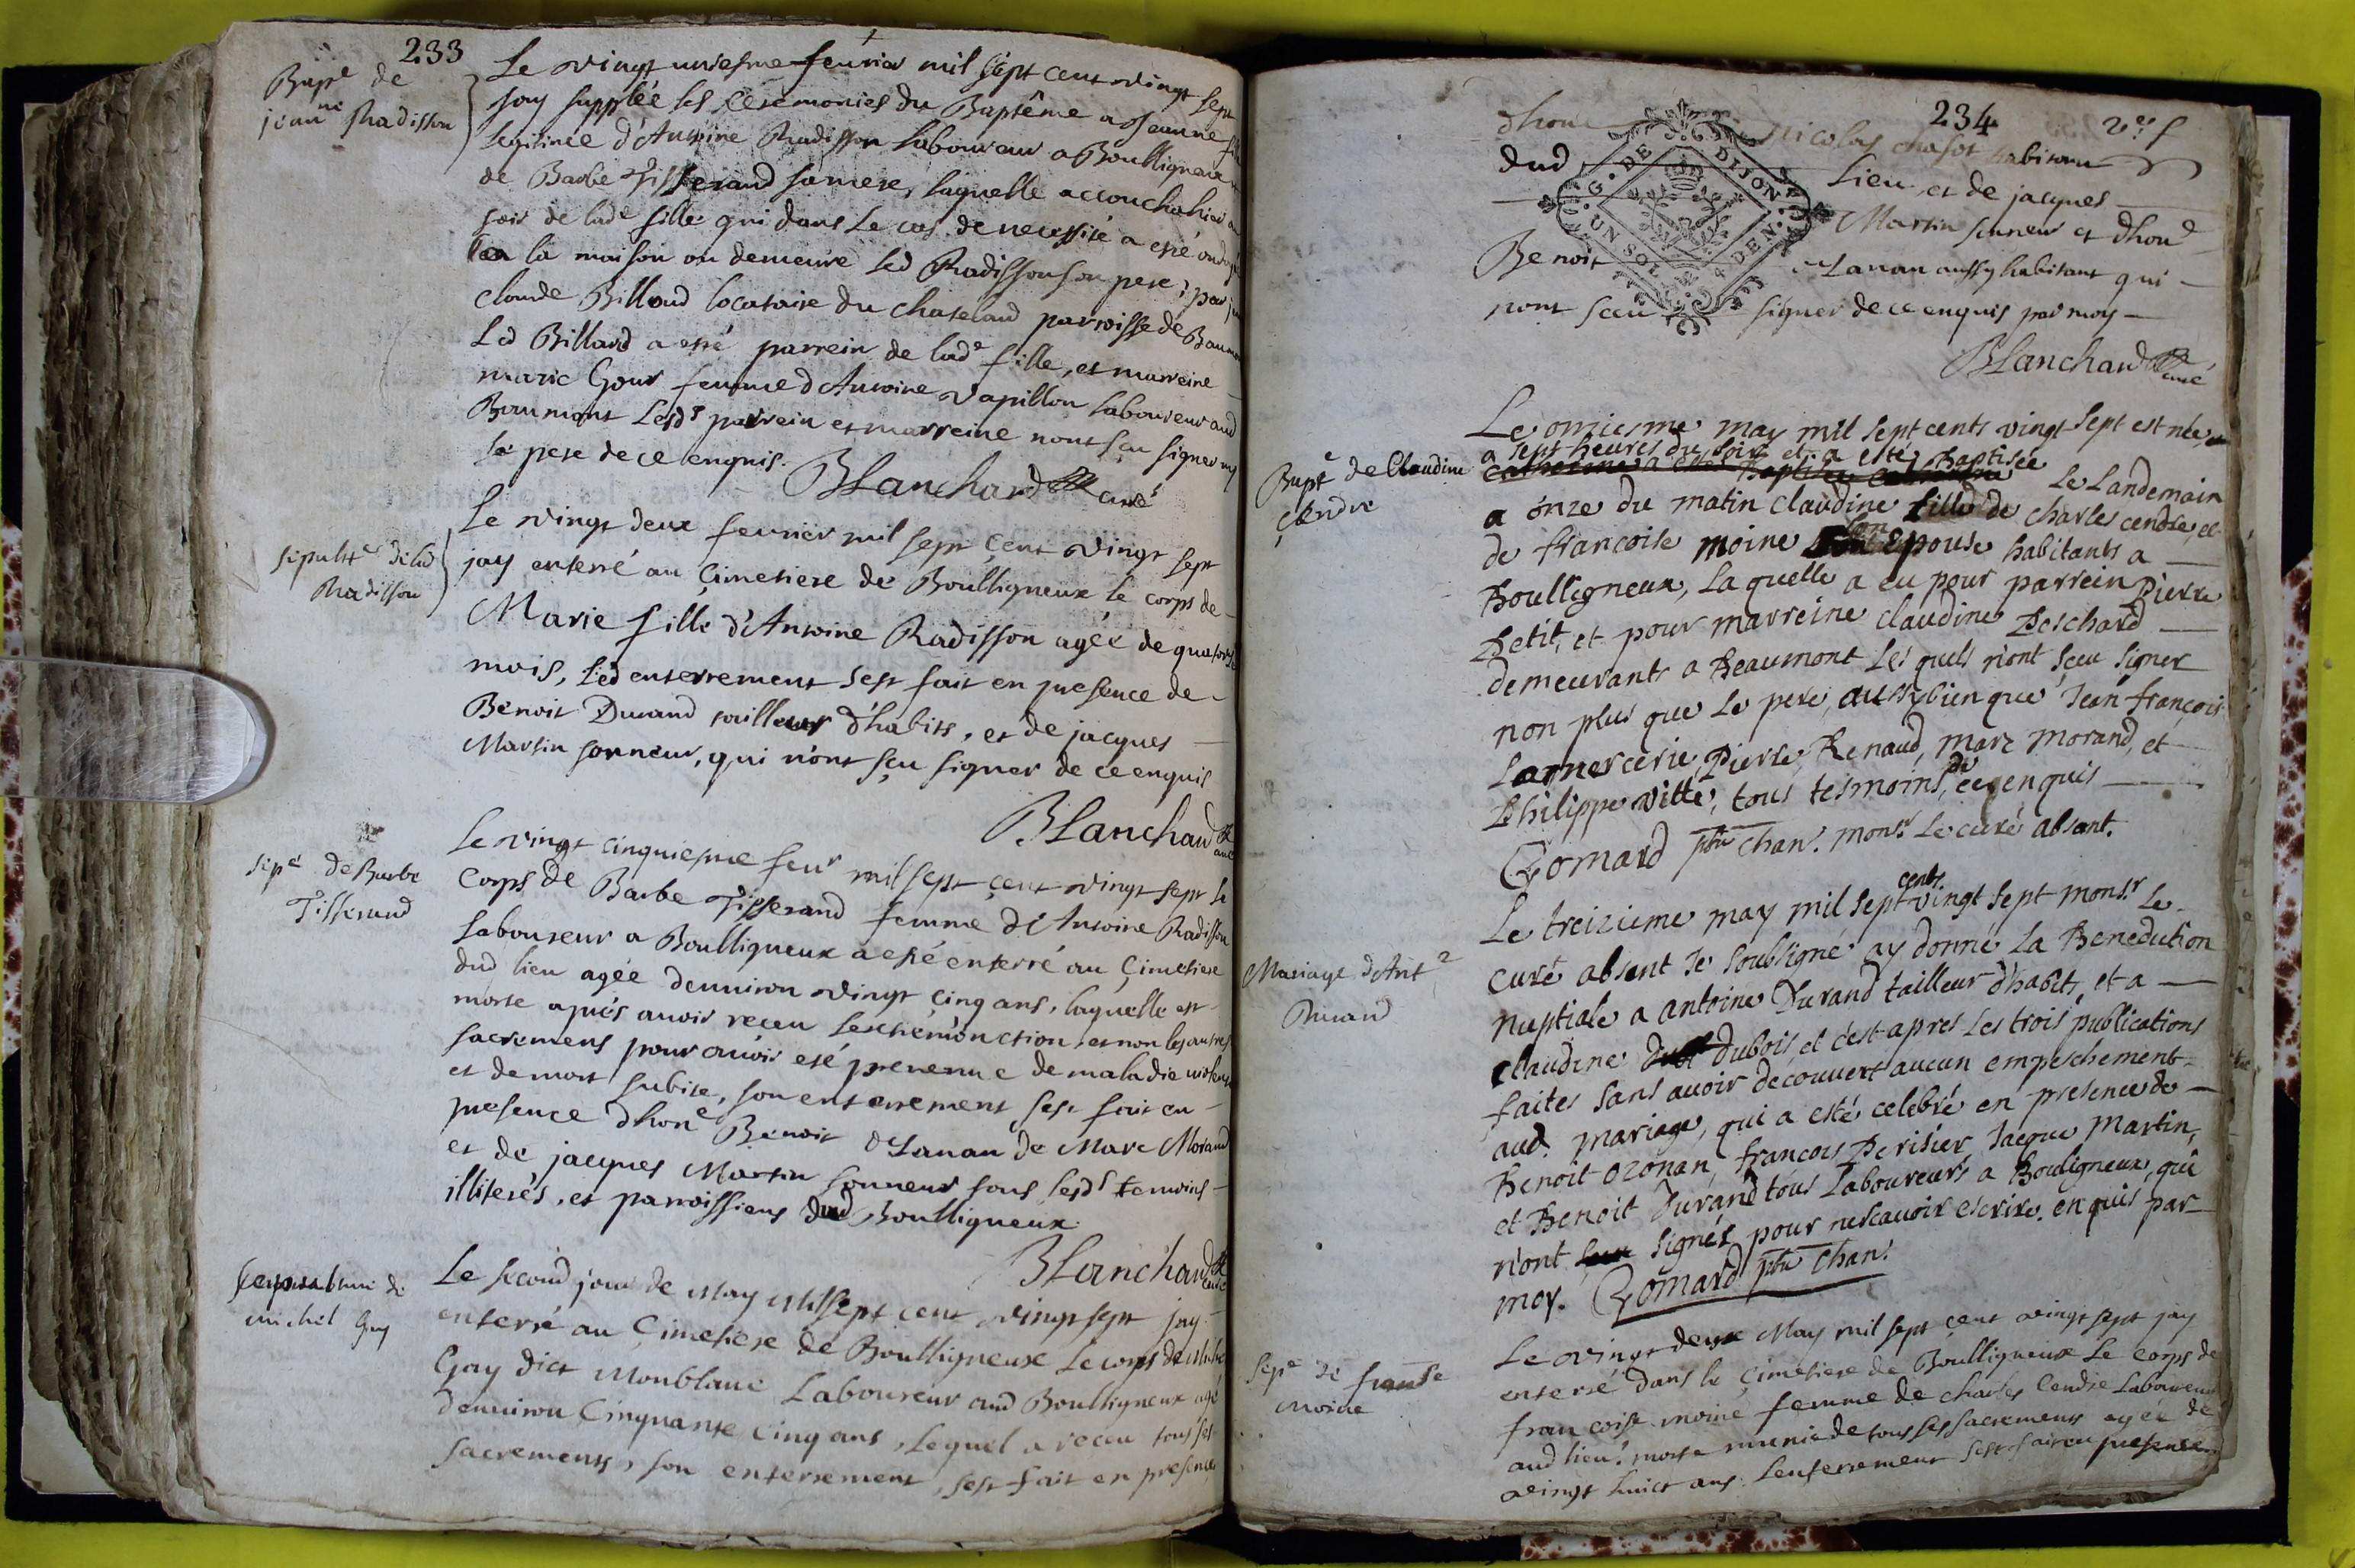 233
Bapt.e de
jeanne Radisson
Le vingt uniesme feurier mil sept cent vingt sept
jay supplée les ceremonies du Baptême a Jeanne fille
legitimée d'Antoine Radisson laboureur a Boulligneux
de Barbe Tisserand sa mere, laquelle accoucha hier au
soir de lad.e fille qui dans le cas de necessité a esté ondoyé
en la maison ou demeure led Radisson son pere, par
claude Billoud locataire du chastelard parroisse de Beaumont
Led Billard a esté parrein de lad.e fille, et marreine
marie Gour femme d'Antoine Papillon laboureur aud
Beaumont Lesd.s parrein et marreine nont sçu signer ny
le pere de ce enquis.
Blanchard curé
sepult.e de lad
Radisson
Le vingt deux feurier mil sept çent vingt sept
jay enterré au çimetiere de Boulligneux le corps de
Marie fille d'Antoine Radisson agée de quatorze
mois, led enterrement sest fait en presence de
Benoit Durand tailleur d'habits, et de jacques
Martin sonneur, qui n'ont sçu signer de ce enquis
Blanchard curé
sep.e de Barbe
Tisserand
Le vingt cinquiesme feur mil sept çent vingt sept le
corps de Barbe Tisserand femme d'Antoine Radisson
laboureur a Boulligneux a esté enterré au çimetiere
dud lieu agée denuiron vingt cinq ans, laquelle est
morte aprés auoir receu lextremonction et non les autres
sacremens pour auoir esté preuenue de maladie violente
et de mort subite, son enterrement sest fait en
presence dhon.e Benoit Ozanan de Marc Morand
et de jacques Martin sonneur tous lesd.s temoins
illiterés, et parroissiens dud Boulligneux.
Blanchard curé
sepulture de
michel Gay
Le second jour de May mil sept cent vingt sept jay
enterré au Çimetiere de Boulligneux le corps de Michel
Gay dict Monblanc Laboureur aud Boulligneux agé
denuiron Cinquante Cinq ans, lequel a receu tous ses
sacrements, son enterrement, sest fait en presence
234
dhon.e Nicolas chasot habitant
dud Lieu et de jacques
Martin sonneur et dhon.e
Benoit Ozanan aussy habitant qui
nont sceu signer de ce enquis par moy
G. DE DIJON
UN SOL 4 DEN.
Blanchard curé
Bapt.e de Claudine
Cendre
Le onziesme may mil sept cents vingt sept est née
a sept heures du soir et a esté Baptisée
Le Landemain
a onze du matin claudine fille de charles cendre, et
de francoise moine son Epouse habitants a
Boulligneux, la quelle a eu pour parrein Pierre
Petit, et pour marreine claudine Peschard
demeurants a Beaumont Les quels n'ont sceu signer
non plus que le pere, aussy bien que Jean françois
Lamercerie, Pierre Renaud, marc morand, et
Philippe Vitte, tous tesmoins, de ce enquis
Gomard ptre chan. mons.r Le curé absent.
Mariage d'Ant.e
Durand
Le treizieme may mil sept cents vingt sept mons.r Le
curé absent Je soubsigné ay donné La Benediction
nuptiale a antoine Durand tailleur d'habits, et a
claudine dubois et c'est apres Les trois publications
faites sans auoir decouvert aucun empeschement
aud. mariage, qui a esté celebré en presence de
Benoit Ozonan, francois Perisier, Jacque Martin,
et Benoit Durand tous Laboureurs a Bouligneux, qui
n'ont signés pour ne scauoir escrire. enquis par
moy. Gomard ptre Chan.
Sep.e de franse
Moine
Le vingt deux May mil sept çent vingt sept jay
enterré dans le çimetiere de Boulligneux le corps de
francoise moine femme de charles Cendre Laboureur
aud lieu. morte munie de tous ses sacrements agée de
vingt huict ans. Lenterrement sest fait en presence